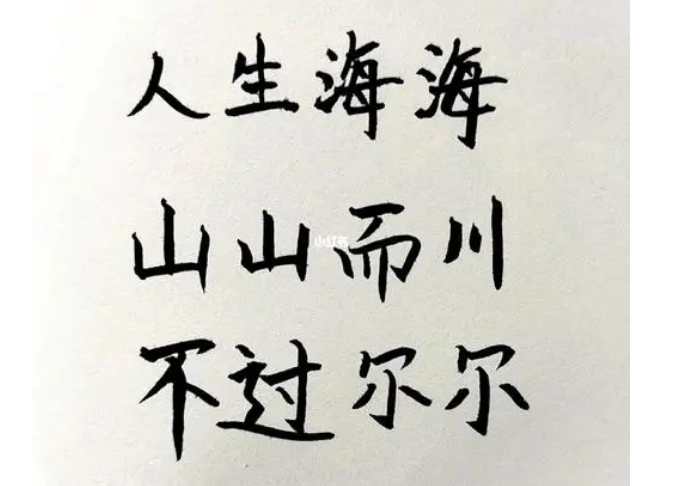 人生海海
山山而川
小红书
不过尔尔